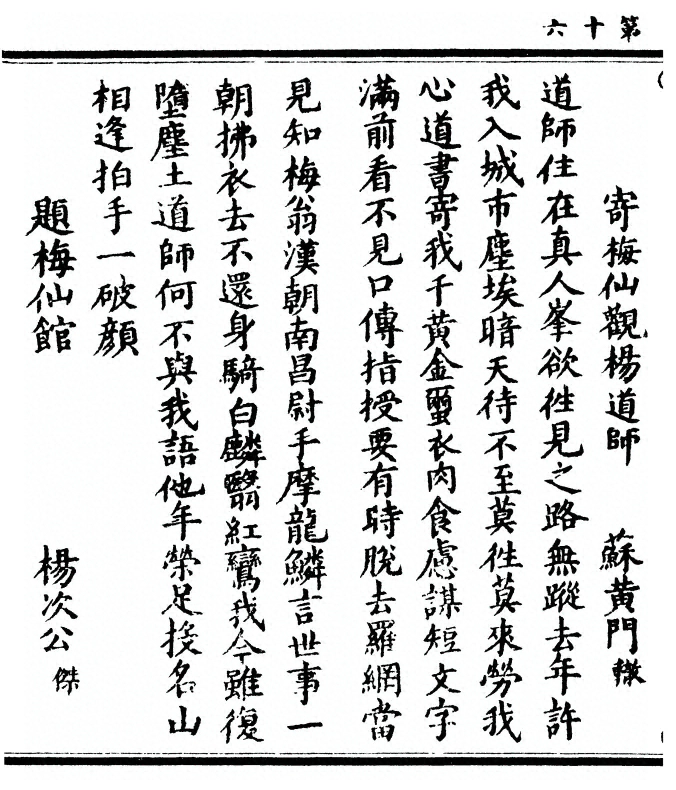 第十六
寄梅仙觀楊道師　蘇黃門轍
道師住在真人峯欲徃見之路無蹤去年許
我入城市塵埃暗天待不至莫徃莫來勞我
心道書寄我千黃金蠒衣肉食慮謀短文字
滿前看不見口傳指授要有時脫去羅網當
見知梅翁漢朝南昌尉手摩龍鱗言世事一
朝拂衣去不還身騎白麟翳紅鸞我今雖復
墮塵土道師何不與我語他年榮足投名山
相逢拍手一破顏
題梅仙館　楊次公傑